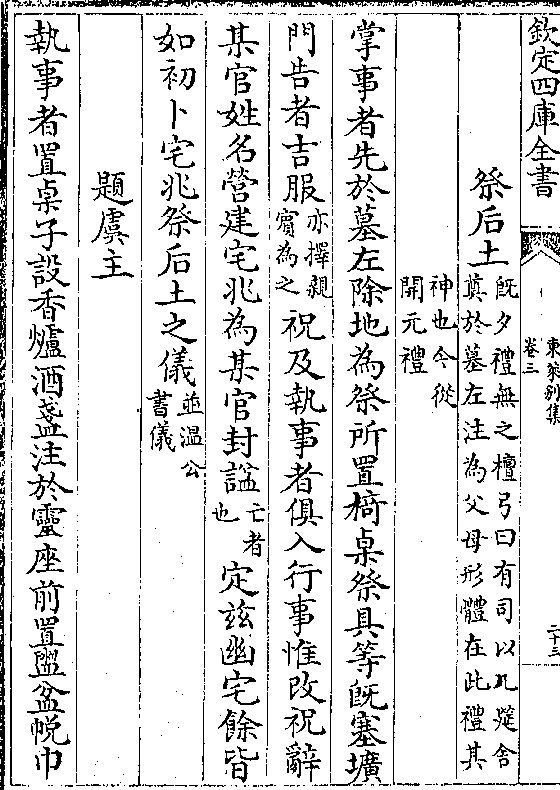 欽定四庫全書
東萊別集
卷三
二十三
祭后土既夕禮無之檀弓曰有司以几筵舍奠於墓左注為父母形體在此禮其神也今從開元禮
掌事者先於墓左除地為祭所置椅桌祭具等既塞壙
門告者吉服亦擇親賓為之祝及執事者俱入行事惟改祝辭
某官姓名營建宅兆為某官封諡亡者也定兹幽宅餘皆
如初卜宅兆祭后土之儀並温公書儀
題虞主
執事者置桌子設香爐酒盞注於靈座前置盥盆帨巾